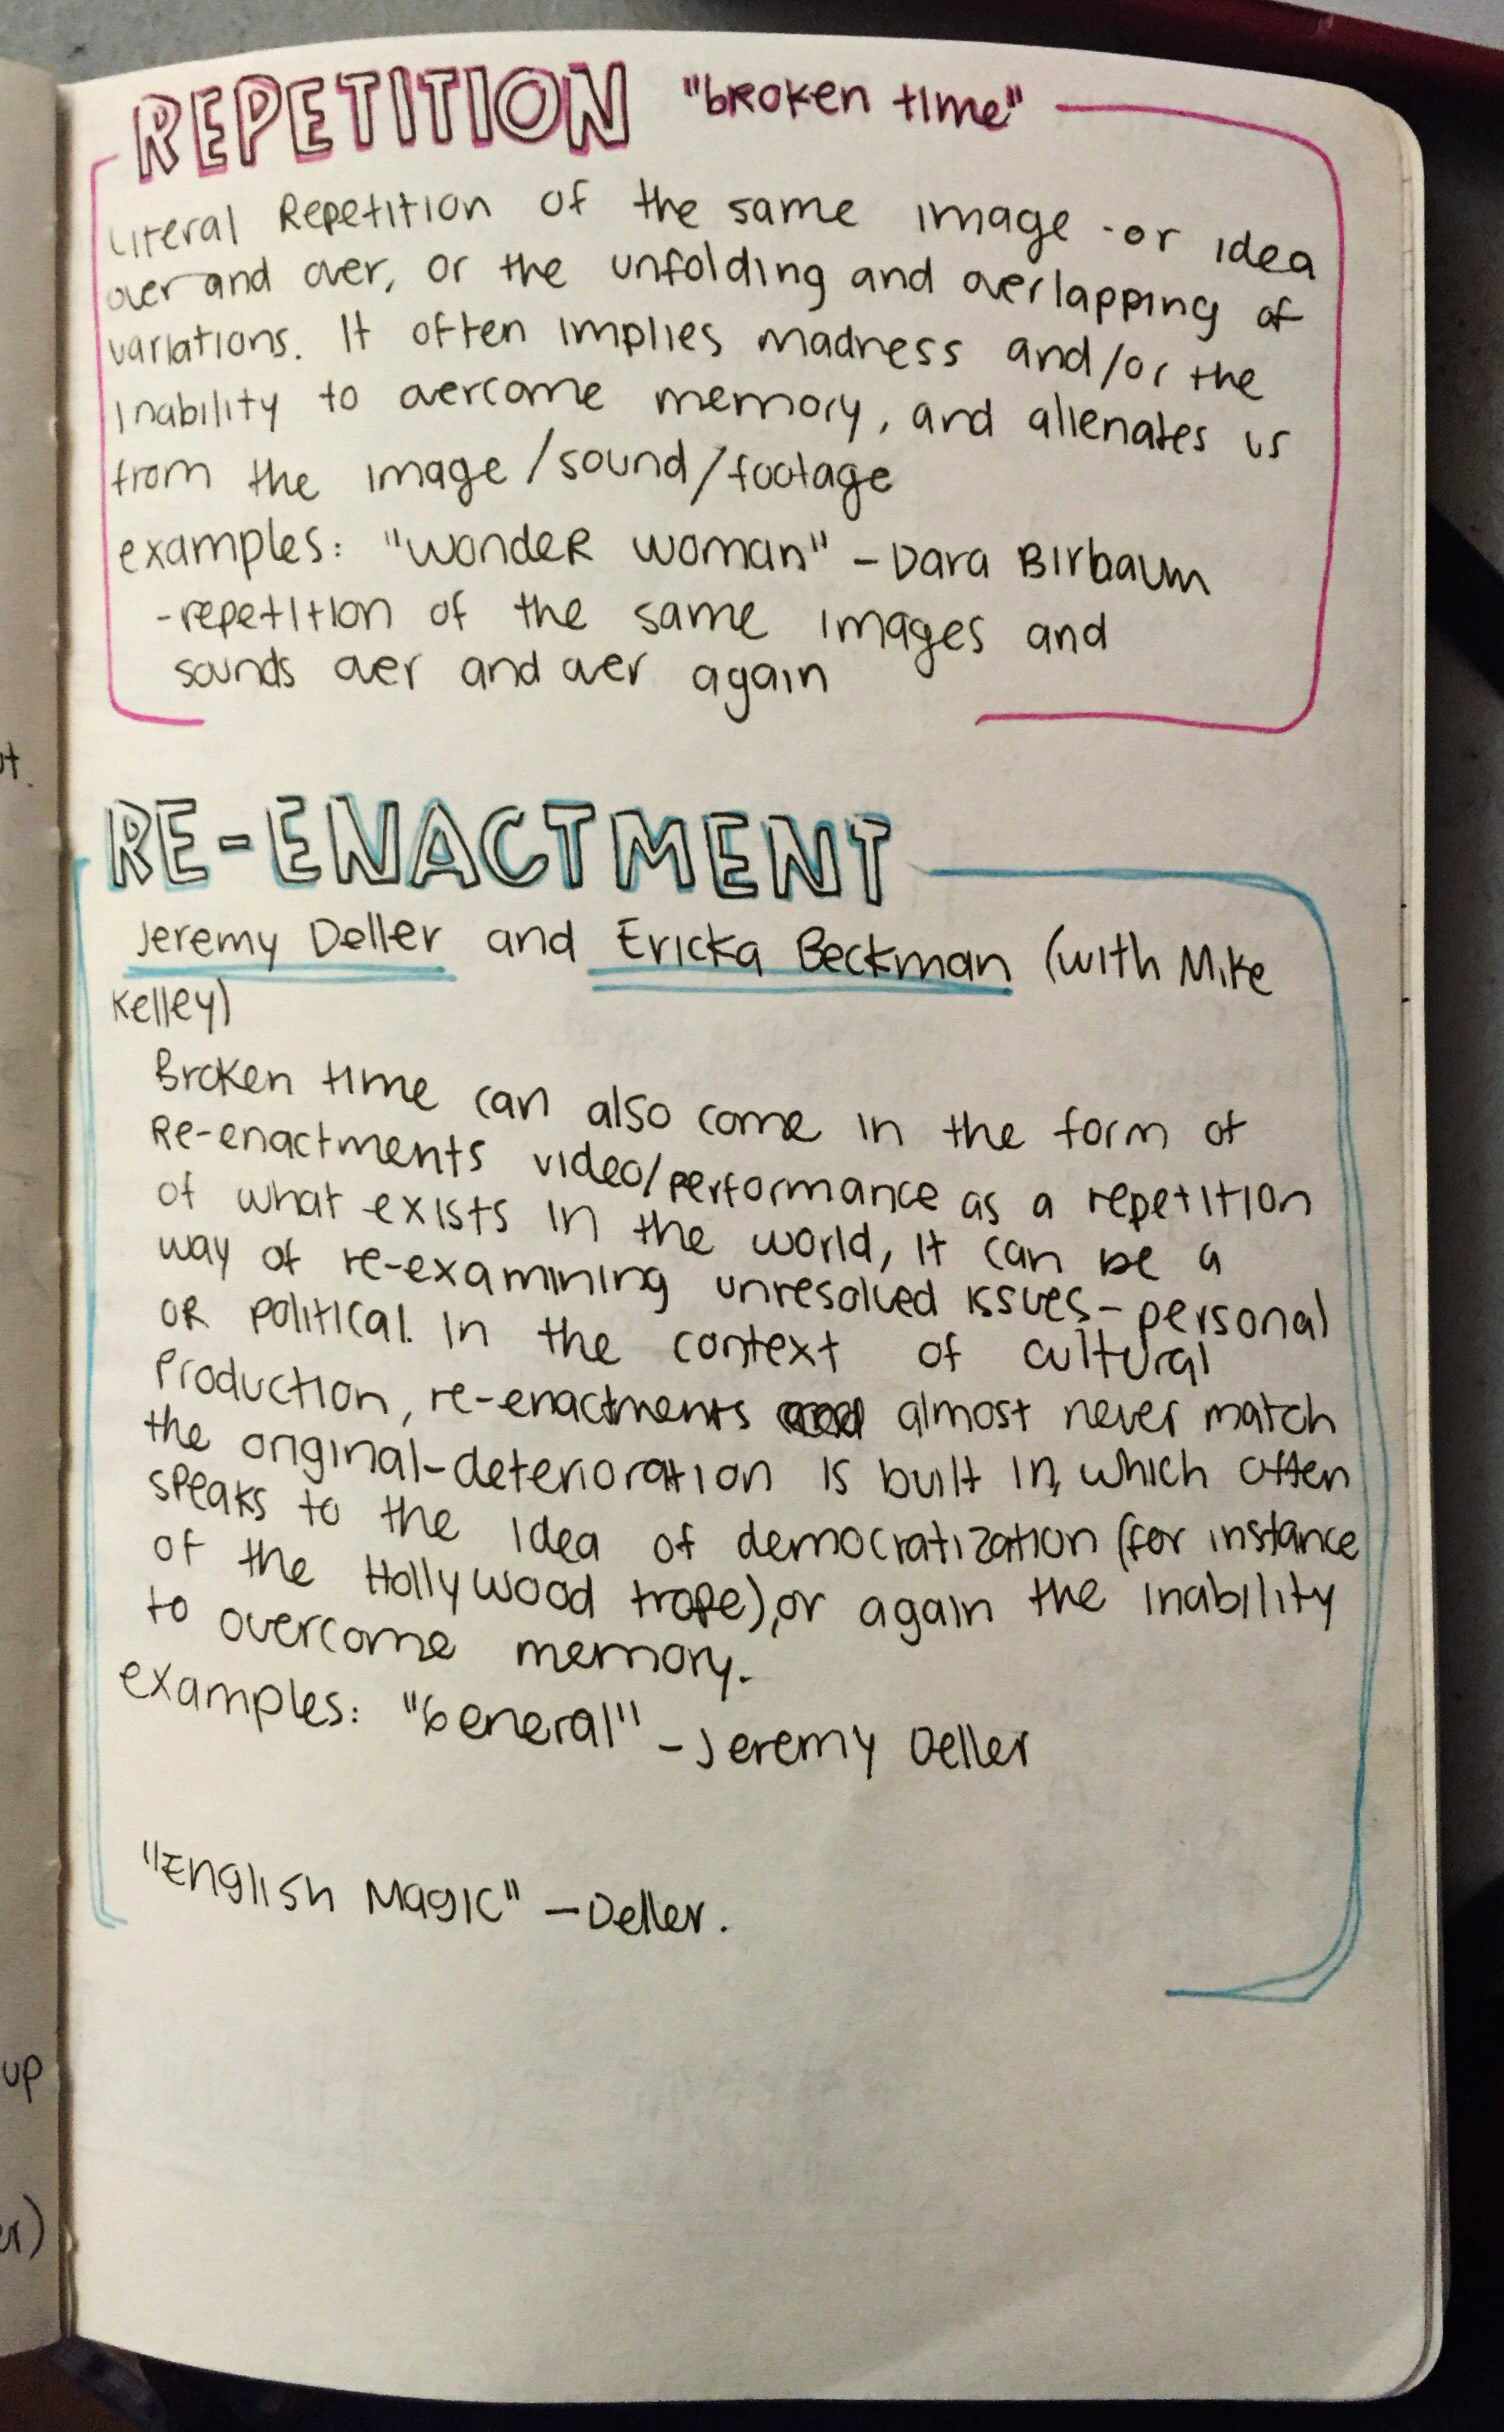 REPETITION "broken time"
Literal Repetition of the same image -or idea
over and over, or the unfolding and overlapping of
variations. It often implies madness and/or the
inability to overcome memory, and alienates us
from the image/sound/footage
examples: "Wonder Woman" - Dara Birbaum
-repetition of the same images and
sounds over and over again
RE-ENACTMENT
Jeremy Deller and Ericka Beckman (with Mike
Kelley)
Broken time can also come in the form of
Re-enactments video/performance as a repetition
of what exists in the world, it can be a
way of re-examining unresolved issues - personal
or political. In the context of cultural
Production, re-enactments almost never match
the original-deterioration is built in, which often
speaks to the idea of democratization (for instance
of the Hollywood trope), or again the inability
to overcome memory.
examples: "General" - Jeremy Deller
"English Magic" - Deller.
up